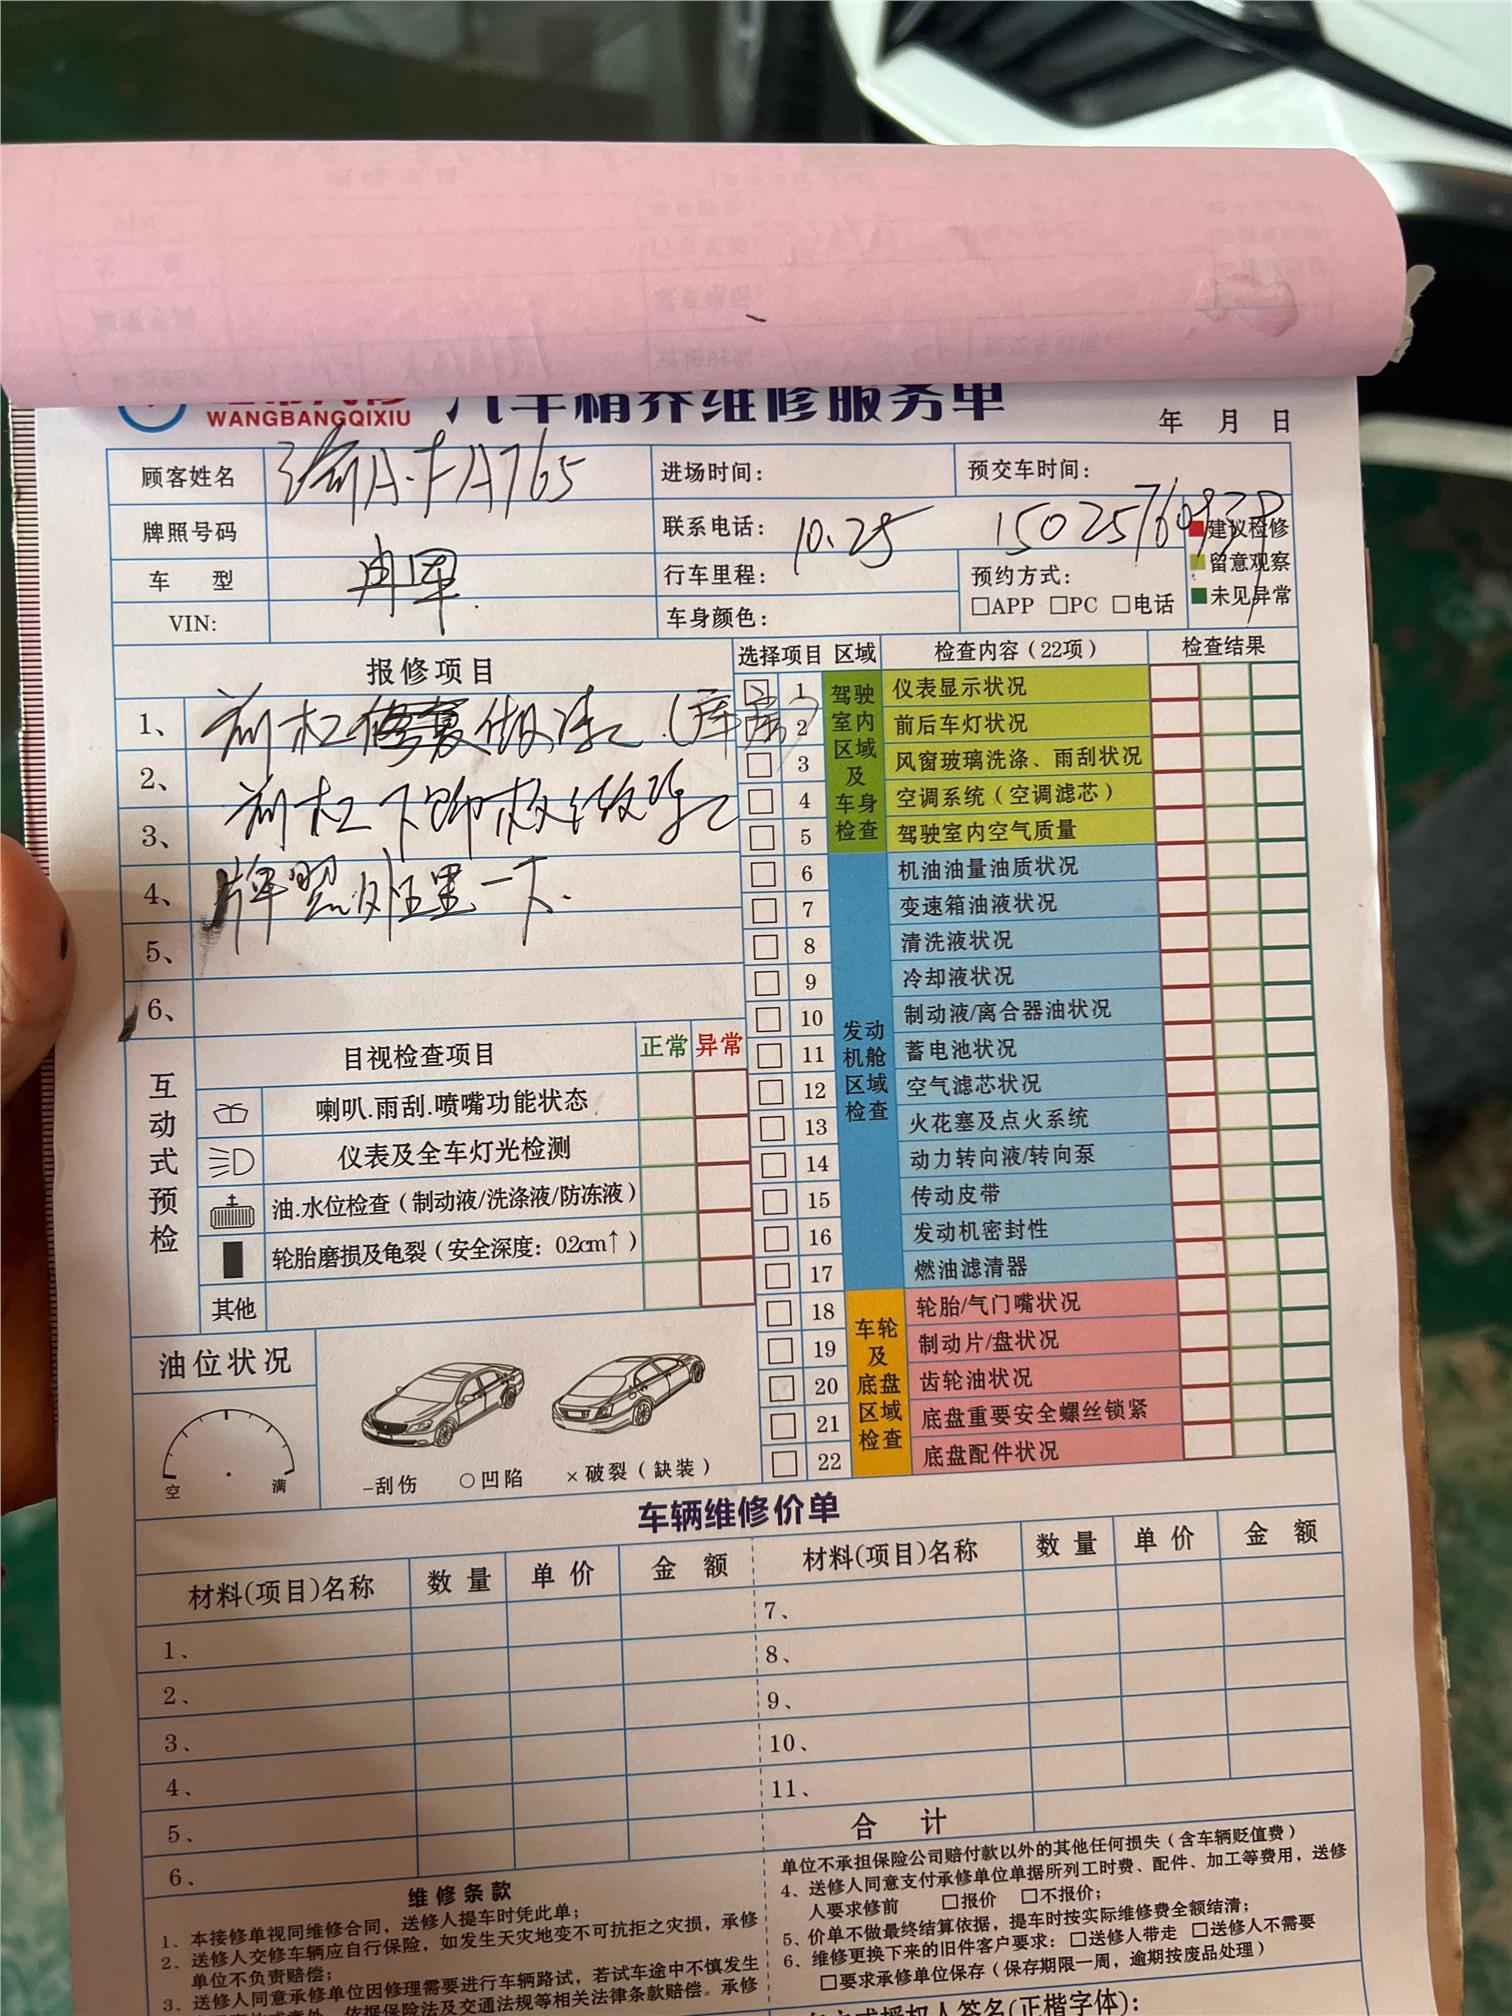 WANGBANGQIXIU 汽车精养维修服务单
年 月 日
顾客姓名 渝A·FA765 进场时间: 预交车时间:
牌照号码 联系电话: 10.25
建议检修
车 型 行车里程: 预约方式:
留意观察
□APP □PC □电话
未见异常
VIN: 车身颜色:
报修项目 选择项目 区域 检查内容(22项) 检查结果
1、前杠修复做漆.
2、
3、前杠下饰板做漆
4、牌照处理一下.
5、
6、
驾驶室内区域及车身检查
1 仪表显示状况
2 前后车灯状况
3 风窗玻璃洗涤、雨刮状况
4 空调系统(空调滤芯)
5 驾驶室内空气质量
发动机舱区域检查
6 机油油量油质状况
7 变速箱油液状况
8 清洗液状况
9 冷却液状况
10 制动液/离合器油状况
11 蓄电池状况
12 空气滤芯状况
13 火花塞及点火系统
14 动力转向液/转向泵
15 传动皮带
16 发动机密封性
17 燃油滤清器
车轮及底盘区域检查
18 轮胎/气门嘴状况
19 制动片/盘状况
20 齿轮油状况
21 底盘重要安全螺丝锁紧
22 底盘配件状况
互动式预检
目视检查项目 正常 异常
喇叭.雨刮.喷嘴功能状态
仪表及全车灯光检测
油.水位检查(制动液/洗涤液/防冻液)
轮胎磨损及龟裂(安全深度: 0.2cm↑)
其他
油位状况
空 满
-刮伤 ○凹陷 ×破裂(缺装)
车辆维修价单
材料(项目)名称 数 量 单 价 金 额 材料(项目)名称 数 量 单 价 金 额
1、 7、
2、 8、
3、 9、
4、 10、
5、 11、
6、 合 计
维修条款
1、本接修单视同维修合同，送修人提车时凭此单；
2、送修人交修车辆应自行保险，如发生天灾地变不可抗拒之灾损，承修
单位不负责赔偿；
3、送修人同意承修单位因修理需要进行车辆路试，若试车途中不慎发生
依据保险法及交通法规等相关法律条款赔偿。承修
单位不承担保险公司赔付款以外的其他任何损失(含车辆贬值费)
4、送修人同意支付承修单位单据所列工时费、配件、加工等费用，送修
人要求修前 □报价 □不报价；
5、价单不做最终结算依据，提车时按实际维修费全额结清；
6、维修更换下来的旧件客户要求: □送修人带走 □送修人不需要
□要求承修单位保存(保存期限一周，逾期按废品处理)
授权人签名(正楷字体):